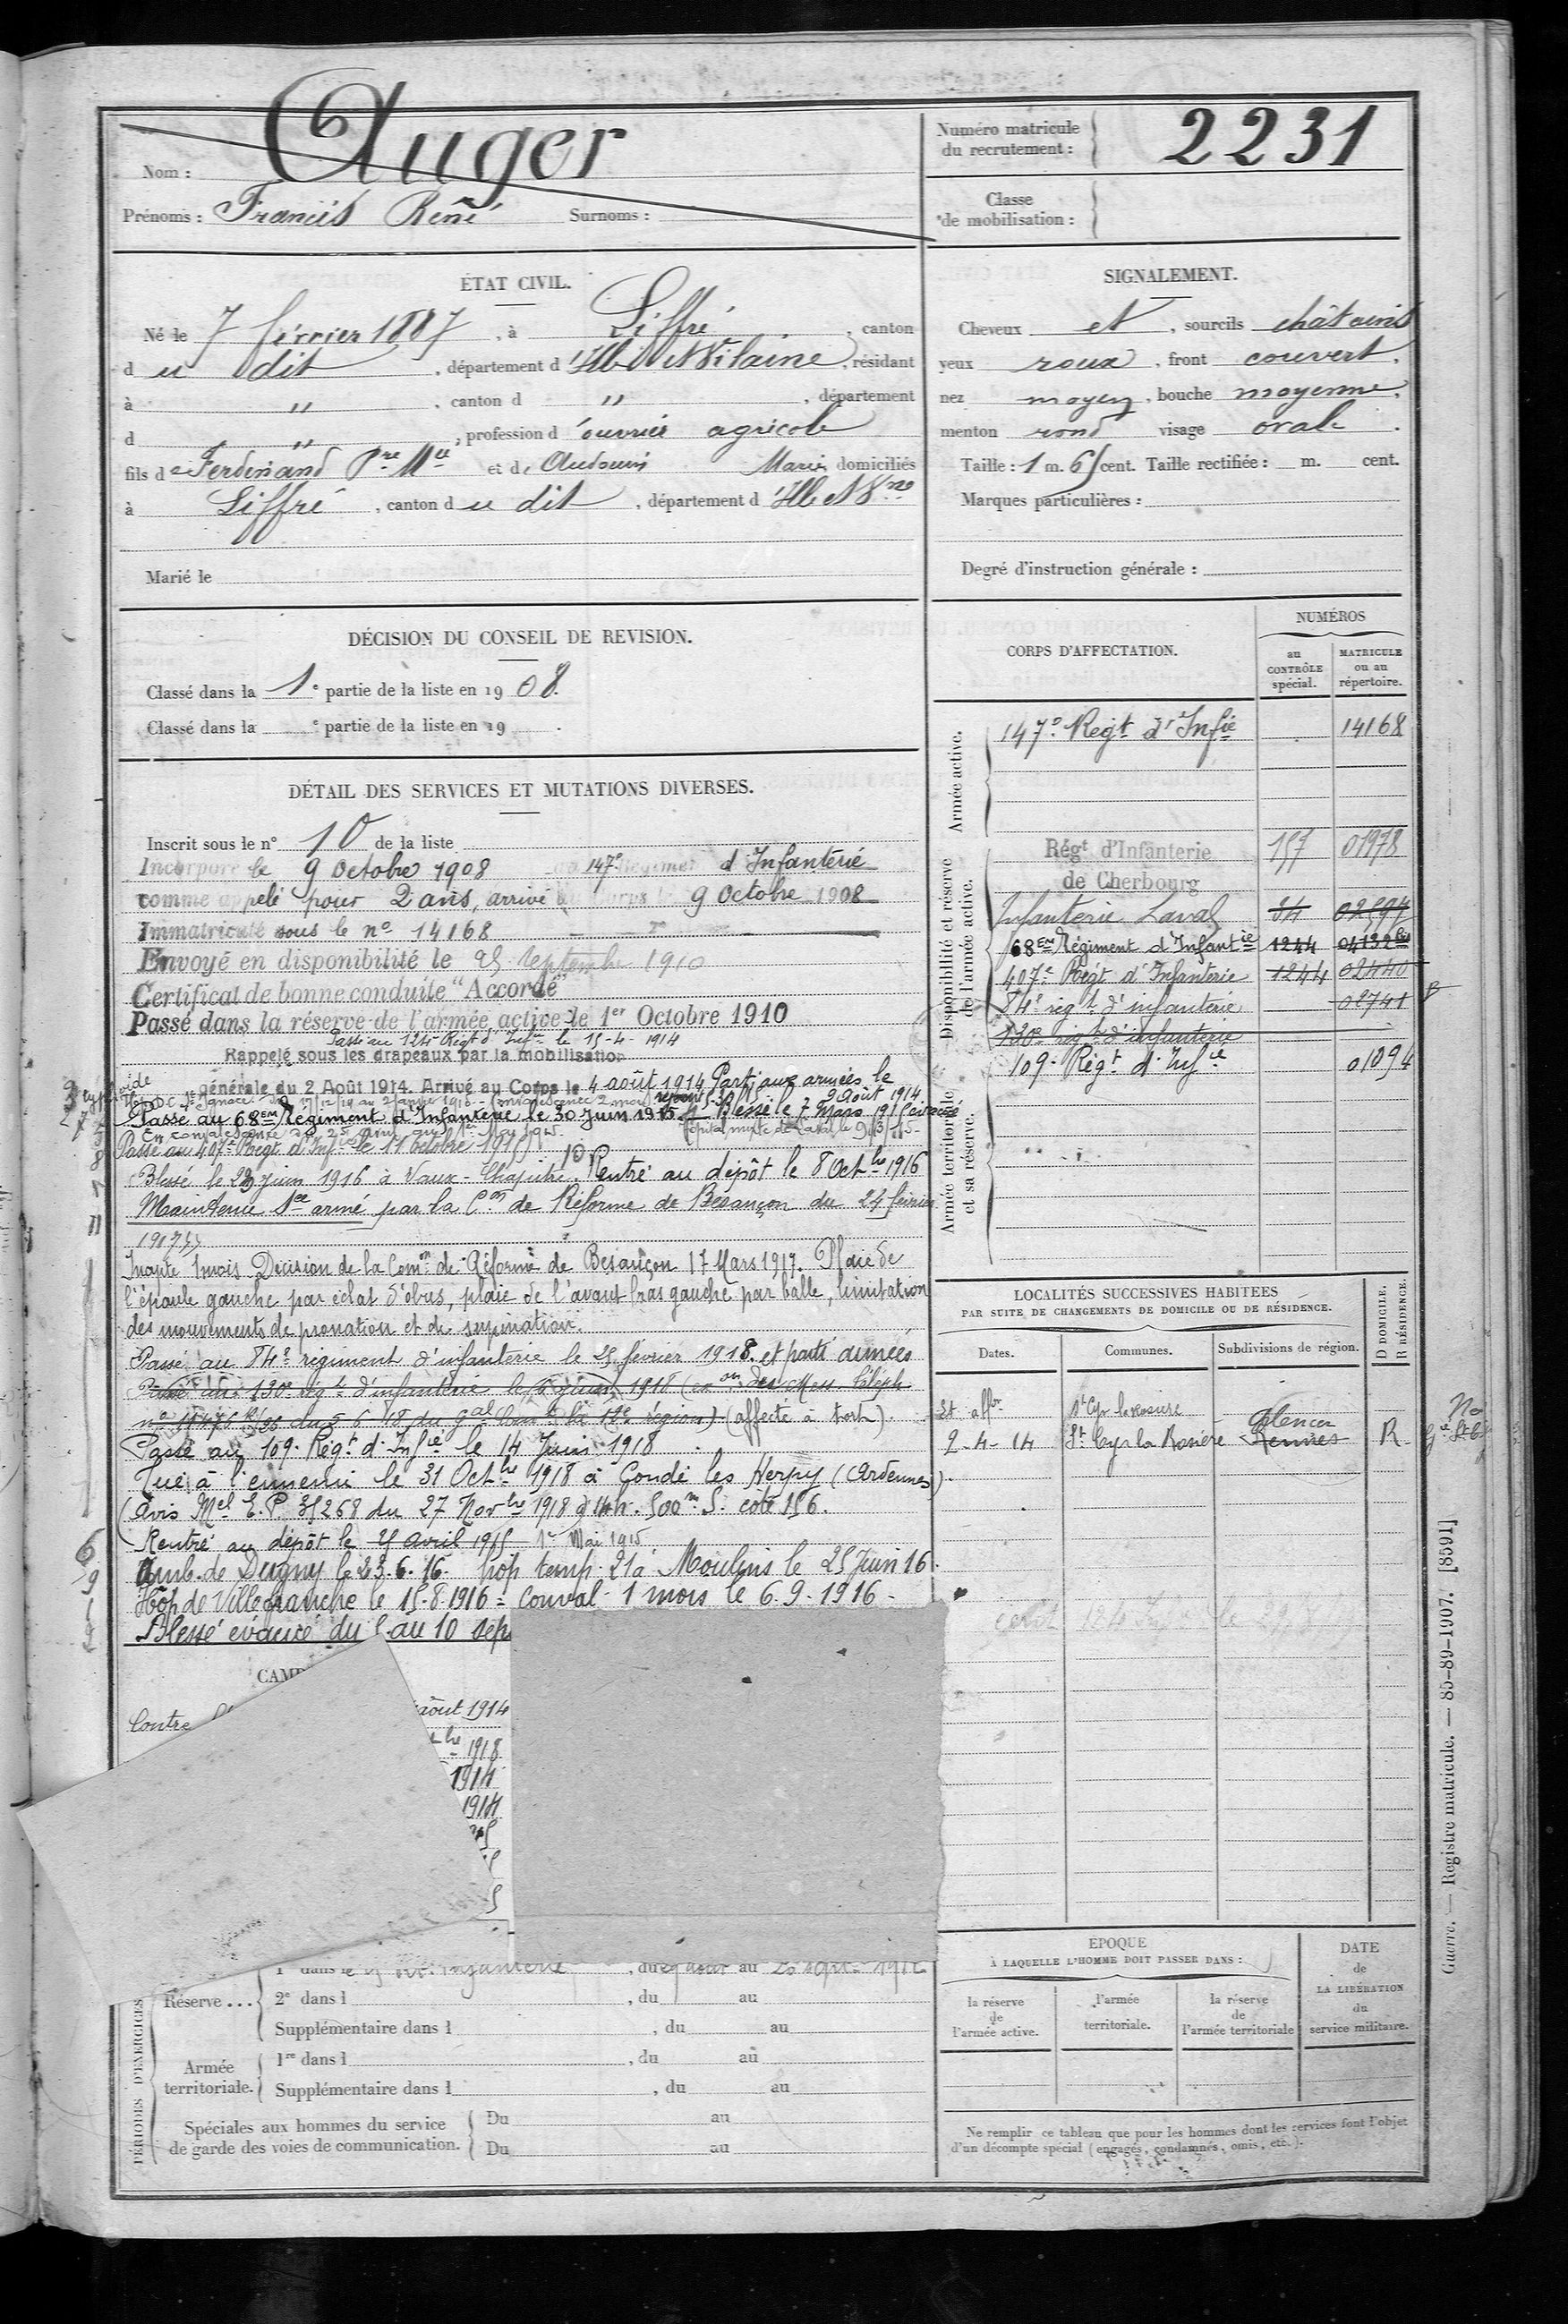 Nom : Auger
Prénoms : Francis René Surnoms :
Numéro matricule
du recrutement : 2231
Classe
de mobilisation :
ÉTAT CIVIL.
Né le 7 février 1887, à Liffré, canton
du dit, département d'Ille et Vilaine, résidant
à ", canton d ", département
d ", profession d'ouvrier agricole
fils de Ferdinand Pre Mie et de Audouin Marie domiciliés
à Liffré, canton du dit, département d'Ille et Vne
Marié le
SIGNALEMENT.
Cheveux et, sourcils châtains
yeux roux, front couvert.
nez moyen, bouche moyenne.
menton rond visage ovale.
Taille : 1 m. 65 cent. Taille rectifiée : m. cent.
Marques particulières :
Degré d'instruction générale :
DÉCISION DU CONSEIL DE REVISION.
Classé dans la 1e partie de la liste en 1908.
Classé dans la e partie de la liste en 19 .
DÉTAIL DES SERVICES ET MUTATIONS DIVERSES.
Inscrit sous le n° 10 de la liste
Incorporé le 9 Octobre 1908 au 147e Régiment d'Infanterie
comme appelé pour 2 ans, arrivé au Corps le 9 Octobre 1908
Immatriculé sous le no 14168
Envoyé en disponibilité le 25 Septembre 1910
Certificat de bonne conduite "Accordé"
Passé dans la réserve de l'armée active le 1er Octobre 1910
Passé au 124e Régt d'Infie le 15-4-1914
Rappelé sous les drapeaux par la mobilisation
générale du 2 Août 1914. Arrivé au Corps le 4 août 1914 Parti aux armées le
9 Août 1914
Passé au 68EM Régiment d'Infanterie le 30 Juin 1915 Blessé le 7 Mars 1915
Hôpital mixte de Laval le 9/3/15
Passé au 407e Régt d'Infie le 11 octobre 1915
Blessé le 23 juin 1916 à Vaux-Chapitre. Rentré au dépôt le 8 Octbre 1916
Maintenu Sce armé par la Con de Réforme de Besançon du 24 février
1917
Inapte 1 mois Décision de la Comon de Réforme de Besançon 17 Mars 1917. Plaie de
l'épaule gauche par éclat d'obus, plaie de l'avant bras gauche par balle, limitation
des mouvements de pronation et de supination.
Passé au 84e régiment d'infanterie le 25 février 1918. et parti armées
Passé au 130e régt d'infanterie le 6 juin 1918 (en on des Mess. téléph
(affecté à tort).
Passé au 109e Régt d'Infie le 14 Juin 1918
Tué à l'ennemi le 31 Octbre 1918 à Condé les Herpy (Ardennes)
(Avis Mel E.P. 35268 du 27 Novbre 1918) à 14h. 500m S. cote 156.
Rentré au dépôt le 25 Avril 1915 1er Mai 1915
Amb. de Dugny le 23.6.16. hop temp. 21 à Moulins le 25 Juin 16.
Hôp de Villefranche le 15-8-1916 = conval. 1 mois le 6.9.1916 -
Blessé évacué du 5 au 10 sep
CAMP
Contre
août 1914
bre 1918
1914
1914
CORPS D'AFFECTATION.
NUMÉROS
au
CONTRÔLE
spécial.
MATRICULE
ou au
répertoire.
Armée active.
147e Régt d'Infie 14168
Disponibilité et réserve
de l'armée active.
Régt d'Infanterie 157 01978
de Cherbourg
Infanterie Laval 34 02594
68EM Régiment d'Infantie 1244 04132bis
407e Régt d'Infanterie 1244 02440
84e régt d'infanterie 02741
130e régt d'infanterie
109e Régt d'Infie 01094
Armée territoriale
et sa réserve.
LOCALITÉS SUCCESSIVES HABITÉES
PAR SUITE DE CHANGEMENTS DE DOMICILE OU DE RÉSIDENCE.
Dates. Communes. Subdivisions de région. D DOMICILE. R RÉSIDENCE.
St Cyr la Rosière
Alençon
2-4-14 St Cyr la Rosière Rennes R
Réserve...
1re dans le
2e dans l , du au
Supplémentaire dans l , du au
Armée
territoriale.
1re dans l , du au
Supplémentaire dans l , du au
Spéciales aux hommes du service
de garde des voies de communication.
Du au
Du au
PÉRIODES D'EXERCICES
ÉPOQUE
À LAQUELLE L'HOMME DOIT PASSER DANS :
la réserve
de
l'armée active.
l'armée
territoriale.
la réserve
de
l'armée territoriale
DATE
de
LA LIBÉRATION
du
service militaire.
Ne remplir ce tableau que pour les hommes dont les services font l'objet
d'un décompte spécial (engagés, condamnés, omis, etc.).
Guerre. — Registre matricule. — 85-89-1907. [8591]